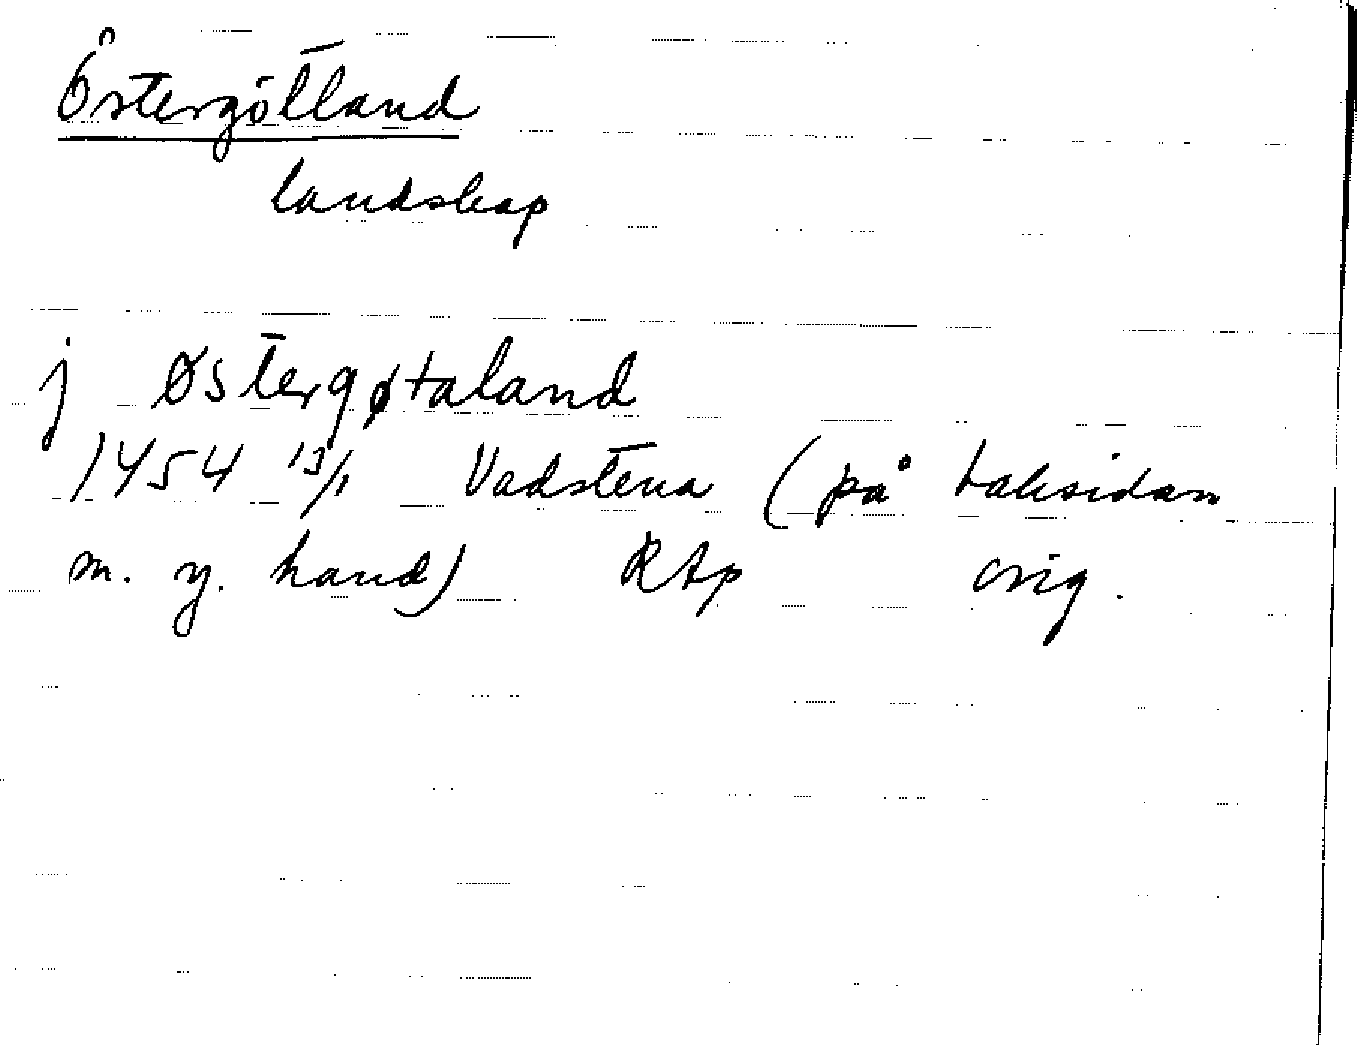 Östergötland
landskap
j østergøtaland
1454 13/1 Vadstena (på baksidan
m. y. hand) RAp orig.